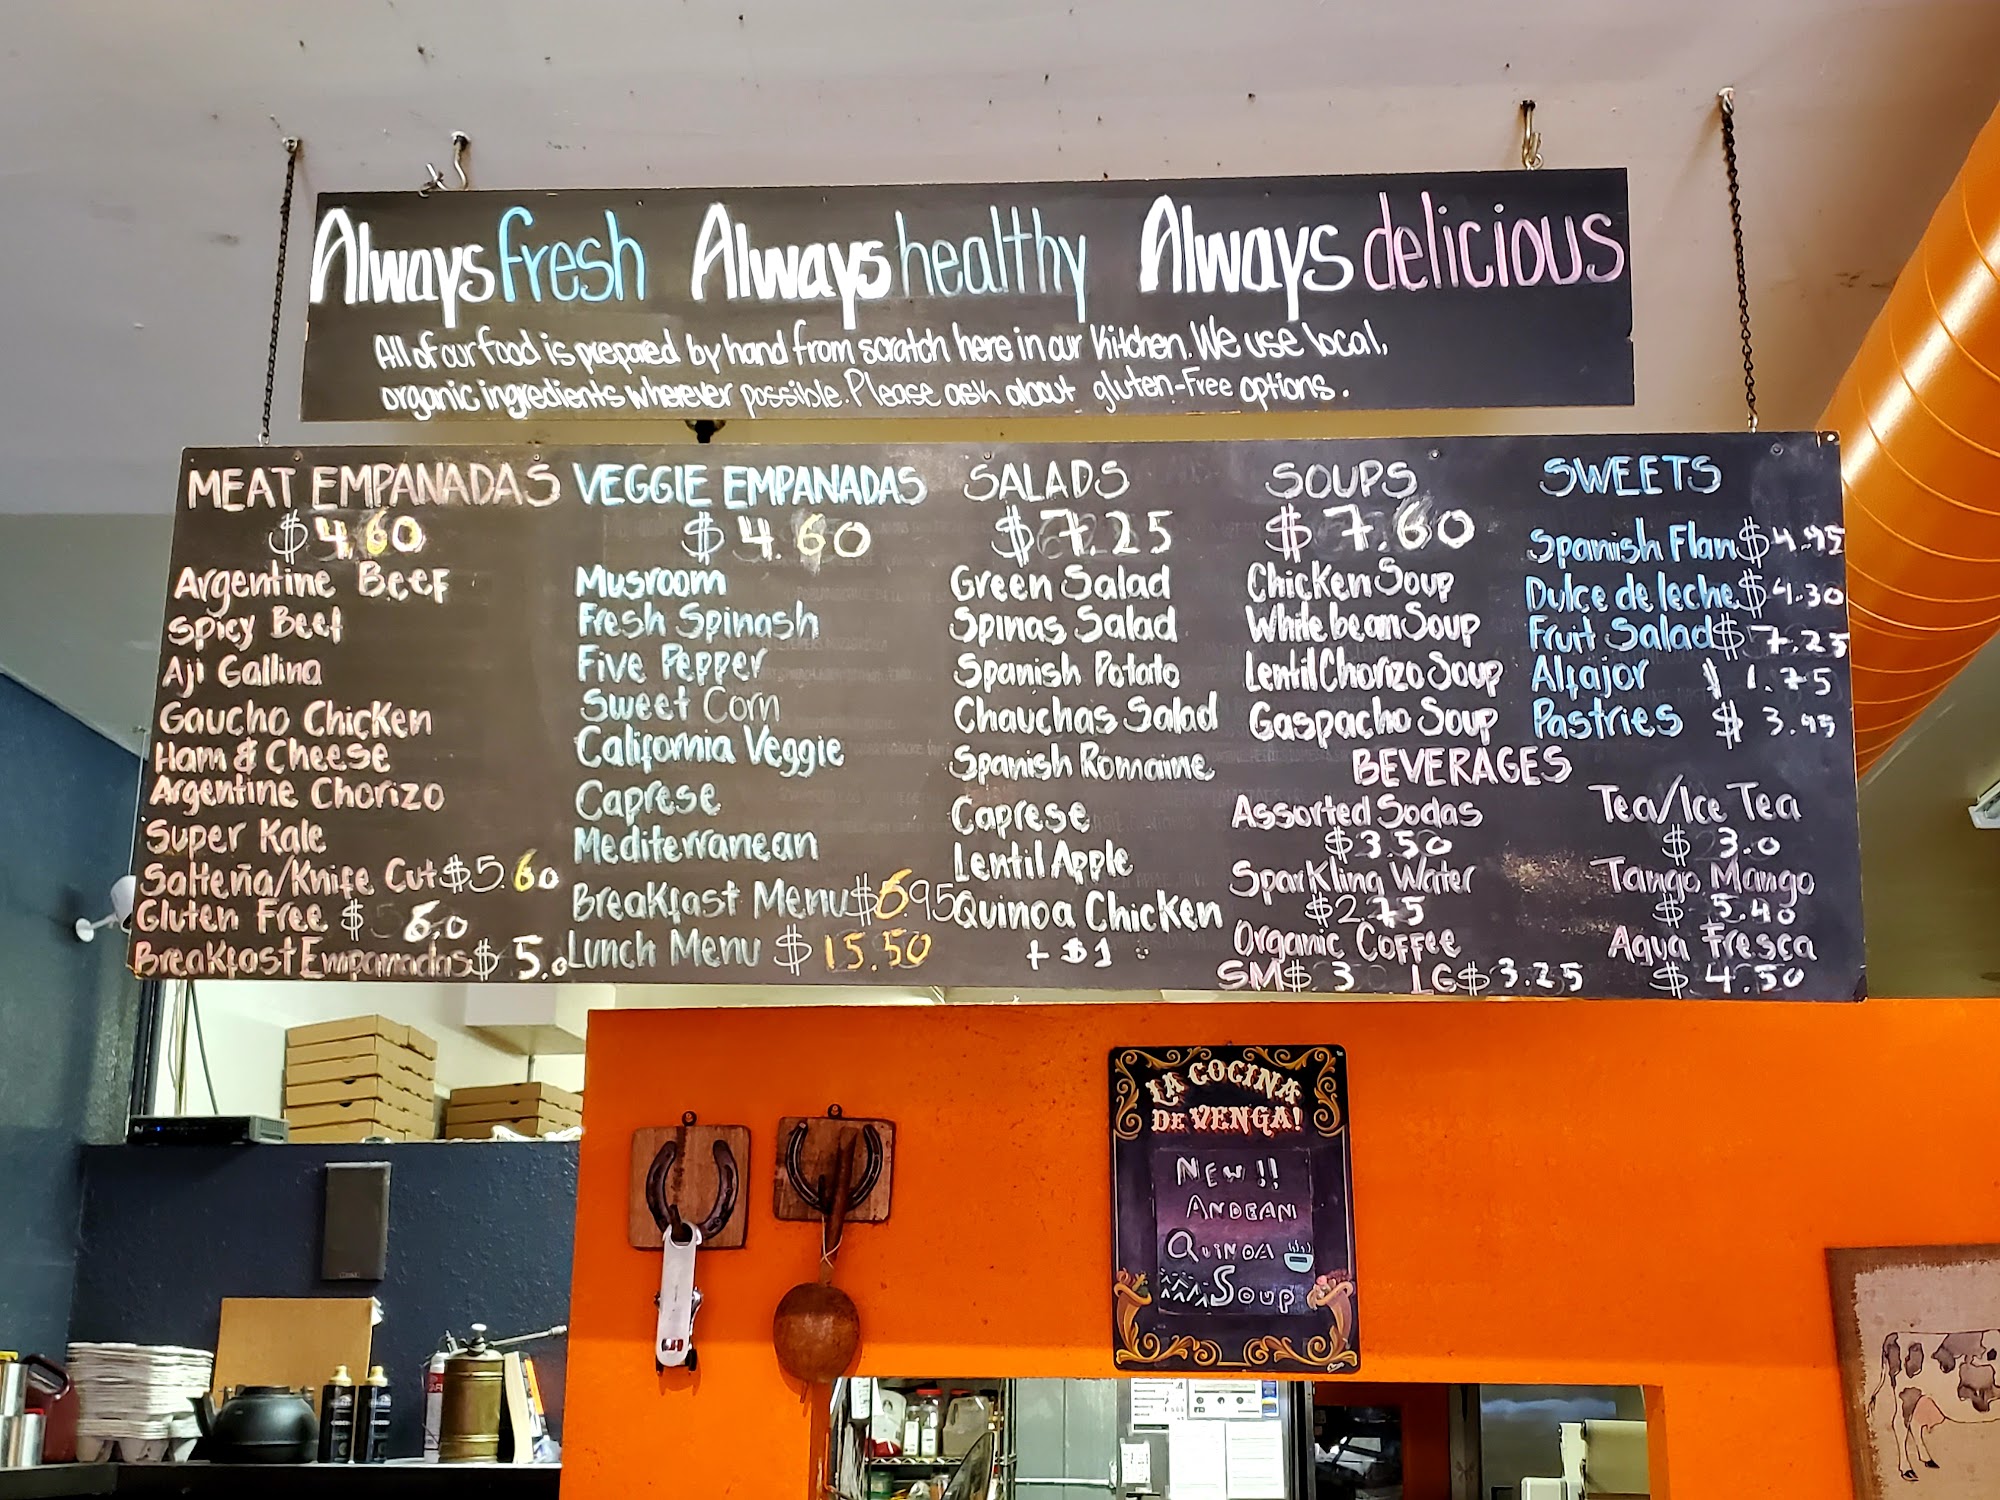 Always fresh Always healthy Always delicious
All of our food is prepared by hand from scratch here in our Kitchen. We use local,
organic ingredients wherever possible. Please ask about gluten-Free options.
MEAT EMPANADAS
$4.60
Argentine Beef
Spicy Beef
Aji Gallina
Gaucho Chicken
Ham & Cheese
Argentine Chorizo
Super Kale
Salteña/Knife Cut $5.60
Gluten Free $ 6.0
Breakfast Empanadas $ 5.0
VEGGIE EMPANADAS
$4.60
Musroom
Fresh Spinash
Five Pepper
Sweet Corn
California Veggie
Caprese
Mediterranean
Breakfast Menu $6.95
Lunch Menu $ 15.50
SALADS
$7.25
Green Salad
Spinas Salad
Spanish Potato
Chauchas Salad
Spanish Romaine
Caprese
Lentil Apple
Quinoa Chicken
+ $1
SOUPS
$7.60
Chicken Soup
White bean Soup
Lentil Chorizo Soup
Gaspacho Soup
SWEETS
Spanish Flan $4.95
Dulce de leche $4.30
Fruit Salad $7.25
Alfajor $ 1.75
Pastries $ 3.95
BEVERAGES
Assorted Sodas
$3.50
Sparkling Water
$2.75
Organic Coffee
SM $ 3 LG $3.25
Tea/Ice Tea
$ 3.0
Tango Mango
$ 5.40
Agua Fresca
$ 4.50
LA COCINA
DE VENGA!
NEW!!
ANDEAN
QUINOA
SOUP